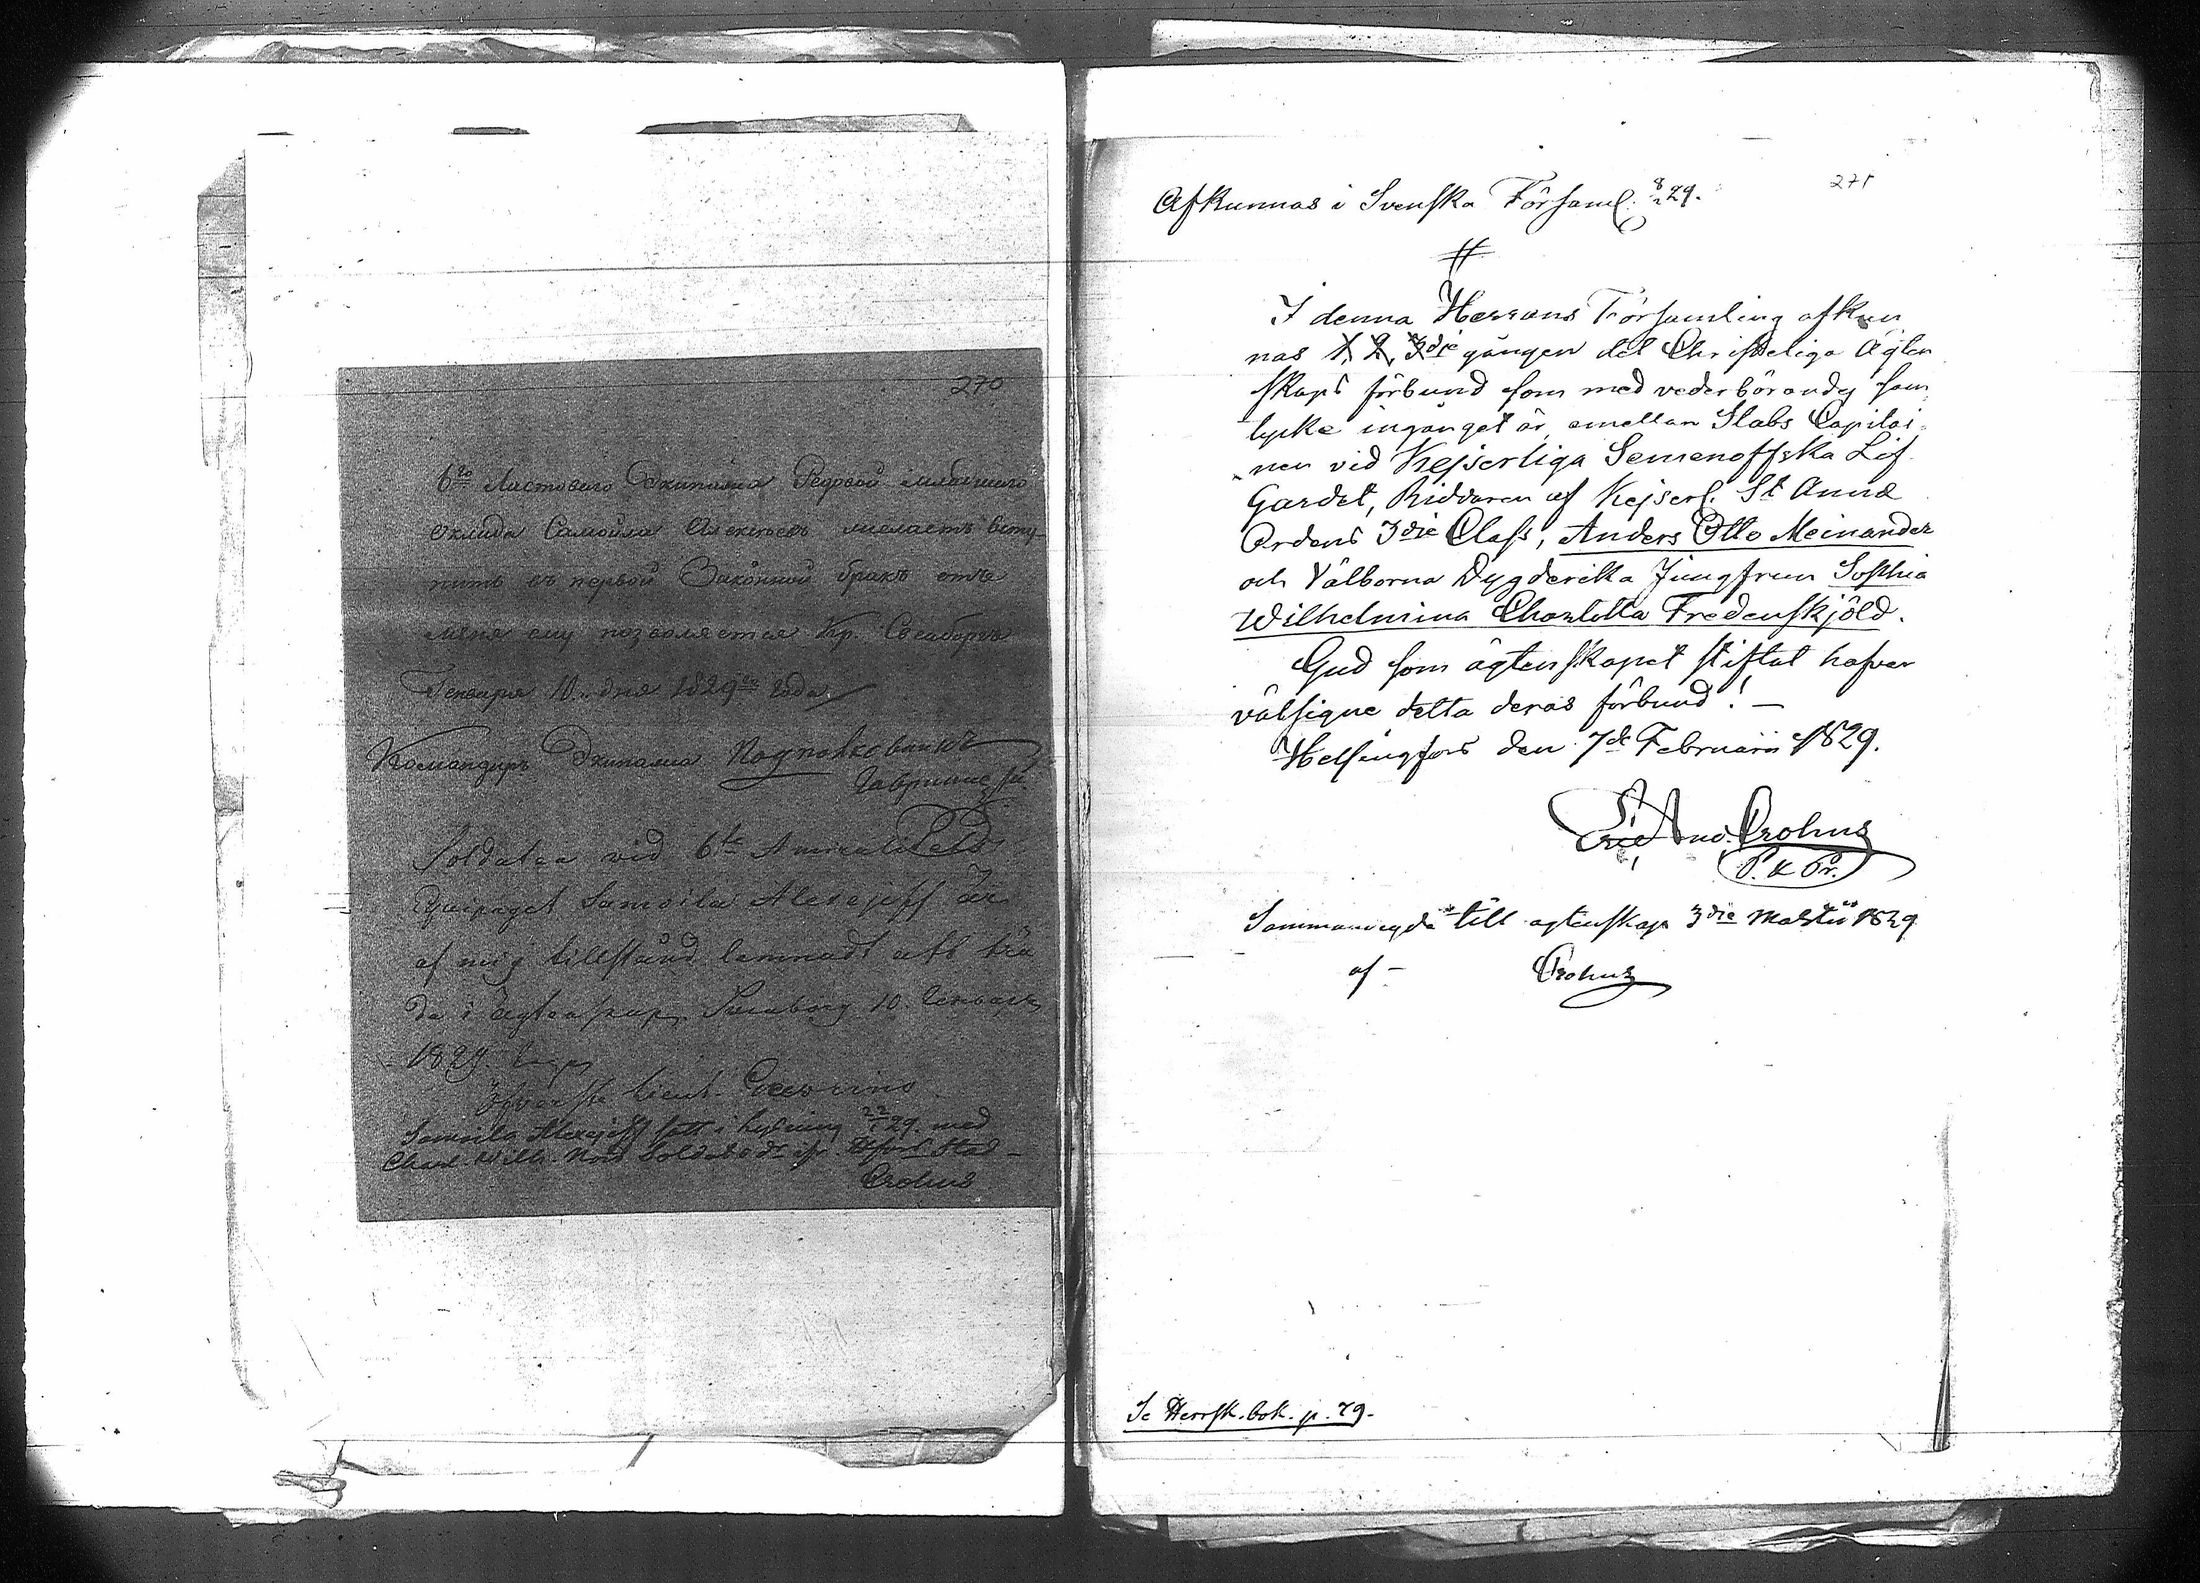 270
6го Ластоваго Экипажа Рядовой младшаго
оклада Самойла Алексеевъ желаетъ всту-
пить въ первой Законной бракъ отъ
меня ему позволяется Кр. Свеаборгъ
Генваря 10. дня 1829го года
Командиръ Экипажа Подполковникъ
Soldaten vid 6te
Equipaget Samoila Alexejeff är
af mig tillstånd lemnadt att trä
da i ägtenskap Sveaborg 10 Januari
1829.
Öfverste Lieut.
Samoila Alexejeff satt i lysning 22/1 29. med
Charl. Wilh. Nord Stad
Crohns
271
Afkunnas i Svenska Församl. 8/2 29.
I denna Herrans Församling afkun
nas 1, 2, 3die gången det Christeliga Ägten
skaps förbund som med vederbörandes sam
tycke ingånget är, emellan Stabs Capitai-
nen vid Kejserliga Semenoffska Lif
Gardet, Riddaren af Kejserl. St Annæ
Ordens 3die Class, Anders Otto Meinander
och Välborna Dygderika Jungfrun Sophia
Wilhelmina Charlotta Fredenskjöld.
Gud som ägtenskapet stiftat hafver
välsigne detta deras förbund! —
Helsingfors den 7de Februarii 1829.
And. Crohns
Sammanvigda till ägtenskap 3die Martii 1829
af — Crohns
Se Herrsk. bok. p. 79.